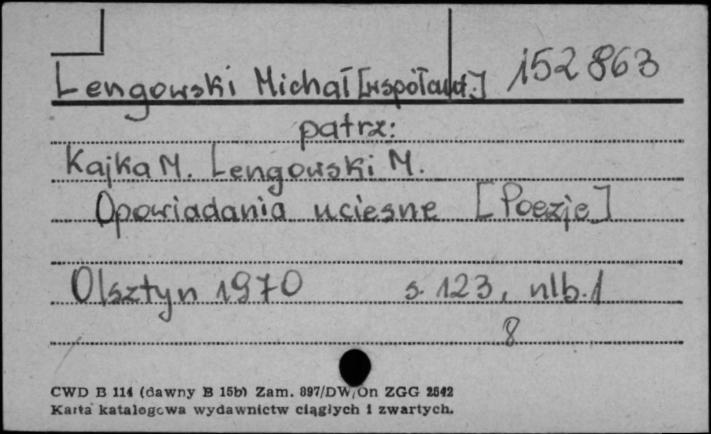 Lengowski Michał [współaut.] 152 863
patrz:
Kajka M. Lengowski M.
Opowiadania ucieszne [Poezje]
Olsztyn 1970 s. 123, nlb. 1
8
CWD B 114 (dawny B 15b) Zam. 897/DW/On ZGG 2542
Karta katalogowa wydawnictw ciągłych i zwartych.